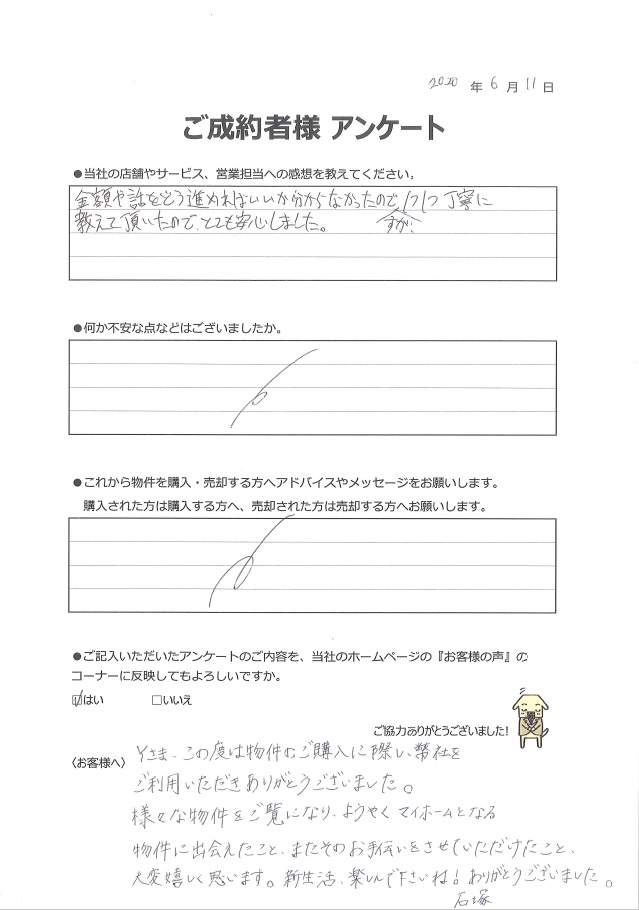 2020 年 6 月 11 日
ご成約者様 アンケート
●当社の店舗やサービス、営業担当への感想を教えてください。
金額や話をどう進めればいいか分からなかったので1つ1つ丁寧に
教えて頂いたので、とても安心しました。
●何か不安な点などはございましたか。
●これから物件を購入・売却する方へアドバイスやメッセージをお願いします。
購入された方は購入する方へ、売却された方は売却する方へお願いします。
●ご記入いただいたアンケートのご内容を、当社のホームページの『お客様の声』の
コーナーに反映してもよろしいですか。
☑はい □いいえ
ご協力ありがとうございました!
〈お客様へ〉 Yさま、この度は物件のご購入に際し、弊社を
ご利用いただきありがとうございました。
様々な物件をご覧になり、ようやくマイホームとなる
物件に出会えたこと、またそのお手伝いをさせていただけたこと、
大変嬉しく思います。新生活、楽しんで下さいね!ありがとうございました。
石塚